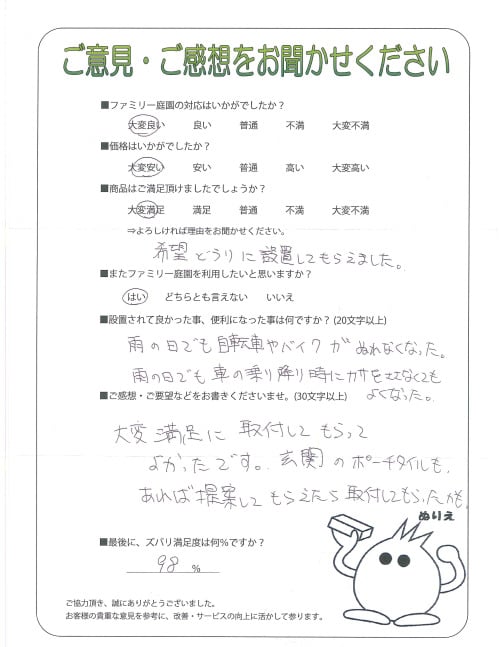 ご意見・ご感想をお聞かせください
■ファミリー庭園の対応はいかがでしたか？
大変良い 良い 普通 不満 大変不満
■価格はいかがでしたか？
大変安い 安い 普通 高い 大変高い
■商品はご満足頂けましたでしょうか？
大変満足 満足 普通 不満 大変不満
⇒よろしければ理由をお聞かせください。
希望どうりに設置してもらえました。
■またファミリー庭園を利用したいと思いますか？
はい どちらとも言えない いいえ
■設置されて良かった事、便利になった事は何ですか？(20文字以上)
雨の日でも自転車やバイクがぬれなくなった。
雨の日でも車の乗り降り時にカサをささなくても
よくなった。
■ご感想・ご要望などをお書きくださいませ。(30文字以上)
大変満足に取付してもらって
よかったです。玄関のポーチタイルも、
あれば提案してもらえたら取付してもらったかも。
ぬりえ
■最後に、ズバリ満足度は何％ですか？
98 %
ご協力頂き、誠にありがとうございました。
お客様の貴重な意見を参考に、改善・サービスの向上に活かして参ります。